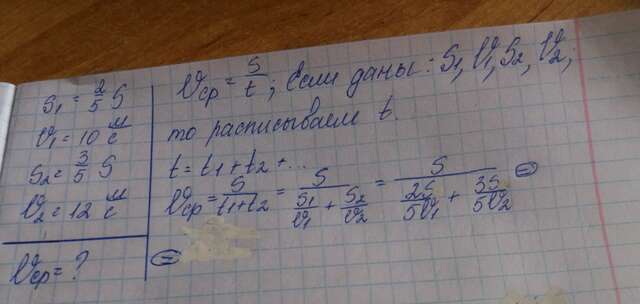 S₁ = 2/5 S
V₁ = 10 м/с
S₂ = 3/5 S
V₂ = 12 м/с
Vср = ?
Vср = S/t; Если даны: S₁, V₁, S₂, V₂;
то расписываем t.
t = t₁ + t₂ + ...
Vср = S/(t₁+t₂) = S/(S₁/V₁ + S₂/V₂) = S/(2S/5V₁ + 3S/5V₂) =
=